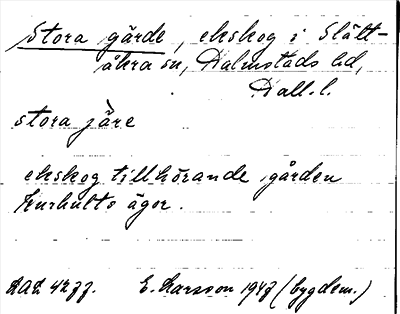 Stora gärde, ekskog i Slätt-
åkra sn, Halmstads hd,
Hall. l.
stora järe
ekskog tillhörande gården
Kurhults ägor.
E. Larsson 1947 (bygdem.)